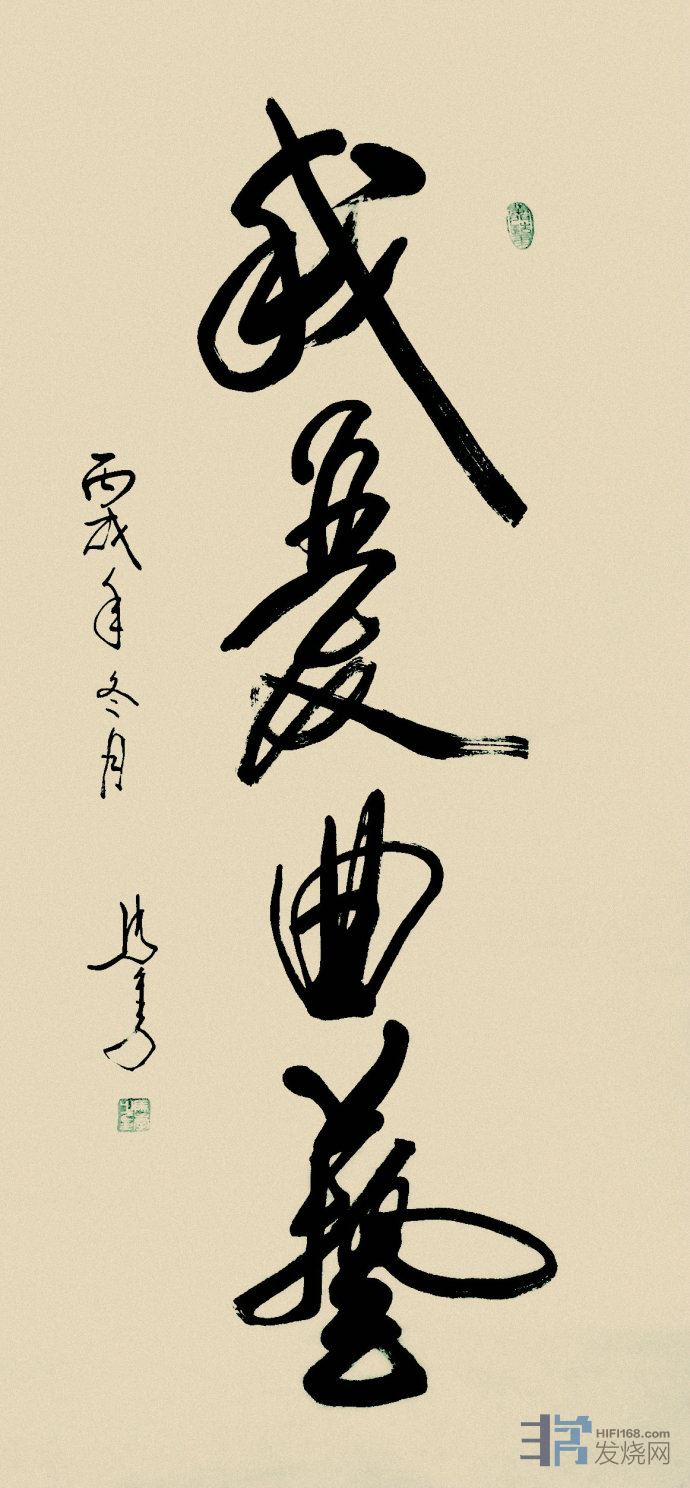 我爱曲藝
丙戌年冬月
HIFI168.com
发烧网